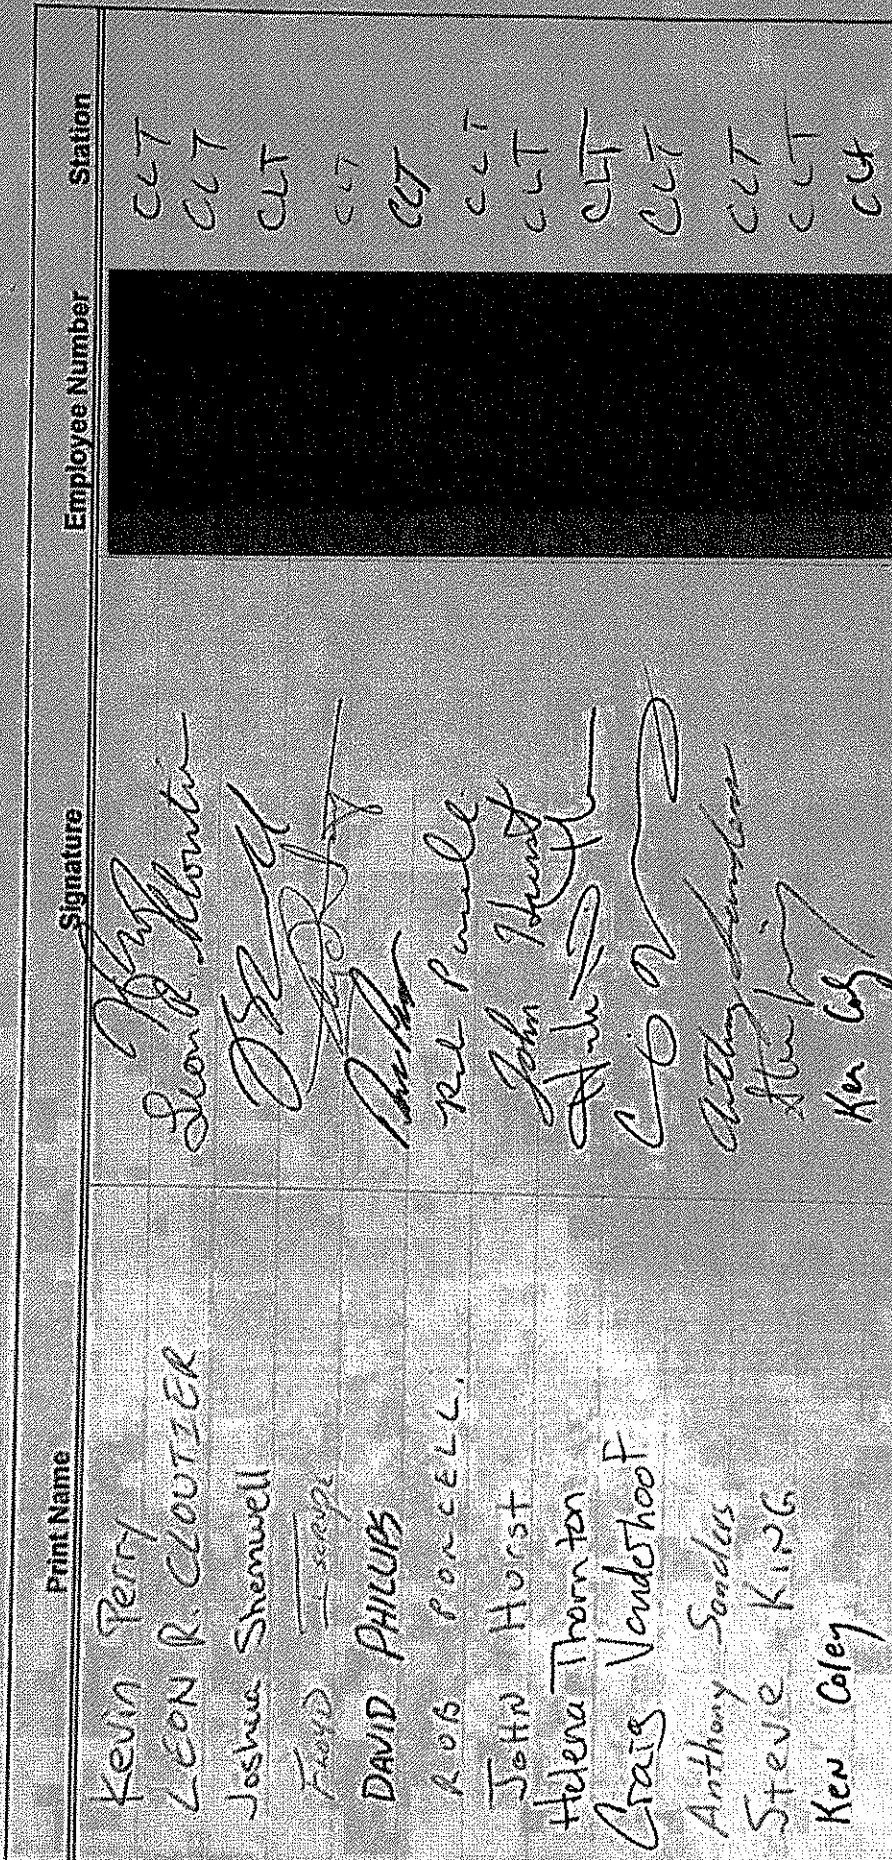 Print Name Signature Employee Number Station
Kevin Perry CLT
LEON R. CLOUTIER Leon R. Cloutier CLT
Joshua Shemwell CLT
FLOYD CLT
DAVID PHILLIPS CLT
ROB PORCELL CLT
JOHN Hurst John Hurst CLT
Helena Thornton CLT
Craig Vanderhoof CLT
Anthony Sanders Anthony Sanders CLT
Steve KING CLT
Ken Coley Ken Coley CLT